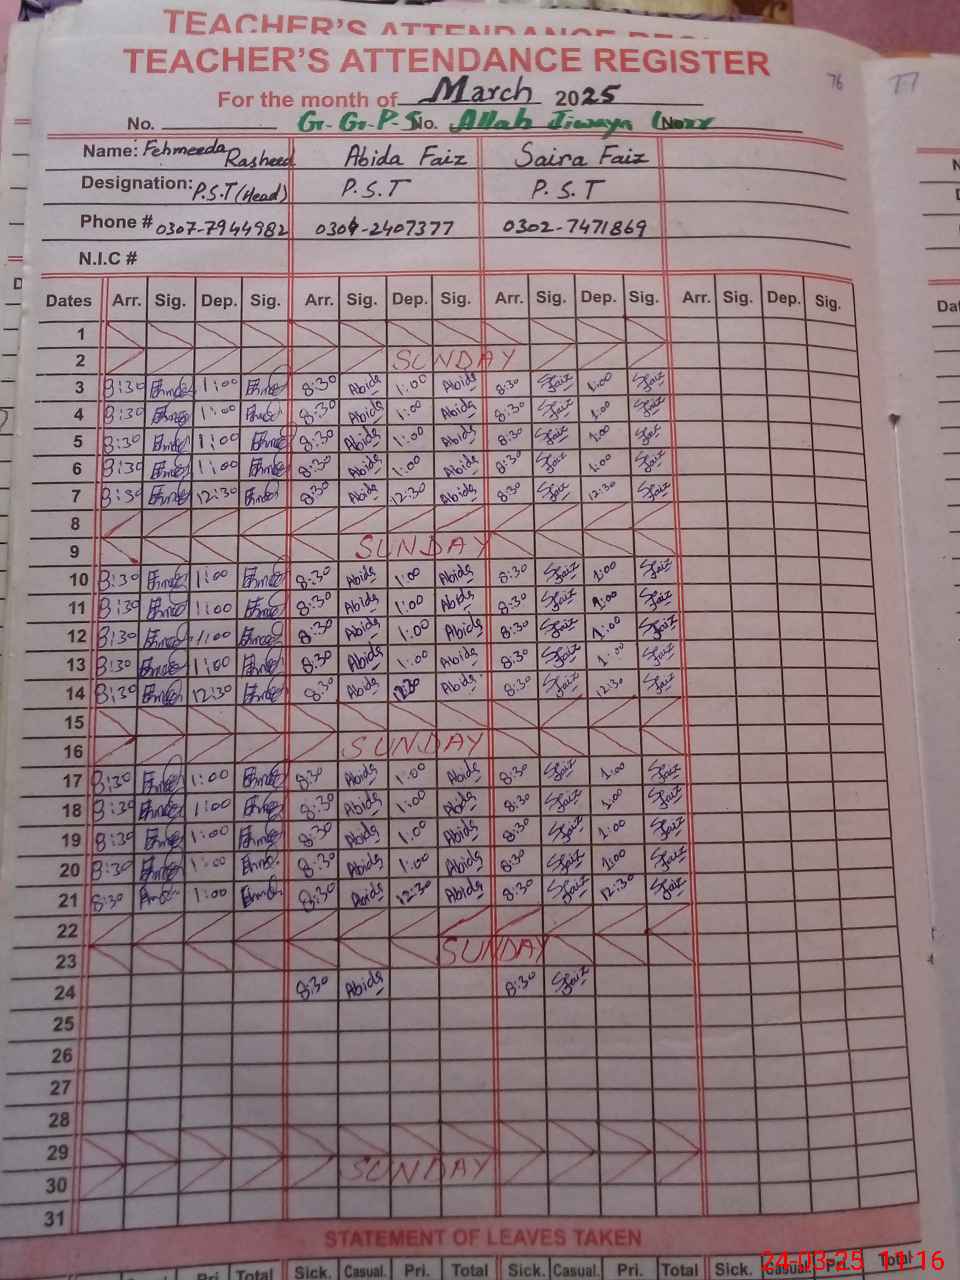 TEACHER'S ATTENDANCE
TEACHER'S ATTENDANCE REGISTER
76 77
For the month of March 2025
No. G.G.P.S No. Allah Jiwaya
Name: Fehmeeda Rasheed Abida Faiz Saira Faiz
Designation: P.S.T (Head) P.S.T P.S.T
Phone # 0307-7944982 0304-2407377 0302-7471869
N.I.C #
Dates Arr. Sig. Dep. Sig. Arr. Sig. Dep. Sig. Arr. Sig. Dep. Sig. Arr. Sig. Dep. Sig.
1
2 SUNDAY
3 8:30 1:00 8:30 Abida 1:00 Abida 8:30 Sfaiz 1:00 Sfaiz
4 8:30 1:00 8:30 Abida 1:00 Abida 8:30 Sfaiz 1:00 Sfaiz
5 8:30 1:00 8:30 Abida 1:00 Abida 8:30 Sfaiz 1:00 Sfaiz
6 8:30 1:00 8:30 Abida 1:00 Abida 8:30 Sfaiz 1:00 Sfaiz
7 8:30 12:30 8:30 Abida 12:30 Abida 8:30 Sfaiz 12:30 Sfaiz
8
9 SUNDAY
10 8:30 1:00 8:30 Abida 1:00 Abida 8:30 Sfaiz 1:00 Sfaiz
11 8:30 1:00 8:30 Abida 1:00 Abida 8:30 Sfaiz 1:00 Sfaiz
12 8:30 1:00 8:30 Abida 1:00 Abida 8:30 Sfaiz 1:00 Sfaiz
13 8:30 1:00 8:30 Abida 1:00 Abida 8:30 Sfaiz 1:00 Sfaiz
14 8:30 12:30 8:30 Abida 12:30 Abida 8:30 Sfaiz 12:30 Sfaiz
15
16 SUNDAY
17 8:30 1:00 8:30 Abida 1:00 Abida 8:30 Sfaiz 1:00 Sfaiz
18 8:30 1:00 8:30 Abida 1:00 Abida 8:30 Sfaiz 1:00 Sfaiz
19 8:30 1:00 8:30 Abida 1:00 Abida 8:30 Sfaiz 1:00 Sfaiz
20 8:30 1:00 8:30 Abida 1:00 Abida 8:30 Sfaiz 1:00 Sfaiz
21 8:30 1:00 8:30 Abida 12:30 Abida 8:30 Sfaiz 12:30 Sfaiz
22
23 SUNDAY
24 8:30 Abida 8:30 Sfaiz
25
26
27
28
29
30 SUNDAY
31
STATEMENT OF LEAVES TAKEN
Pri. Total Sick. Casual. Pri. Total Sick. Casual. Pri. Total Sick. Casual. Pri. Total
24-03-25 11:16